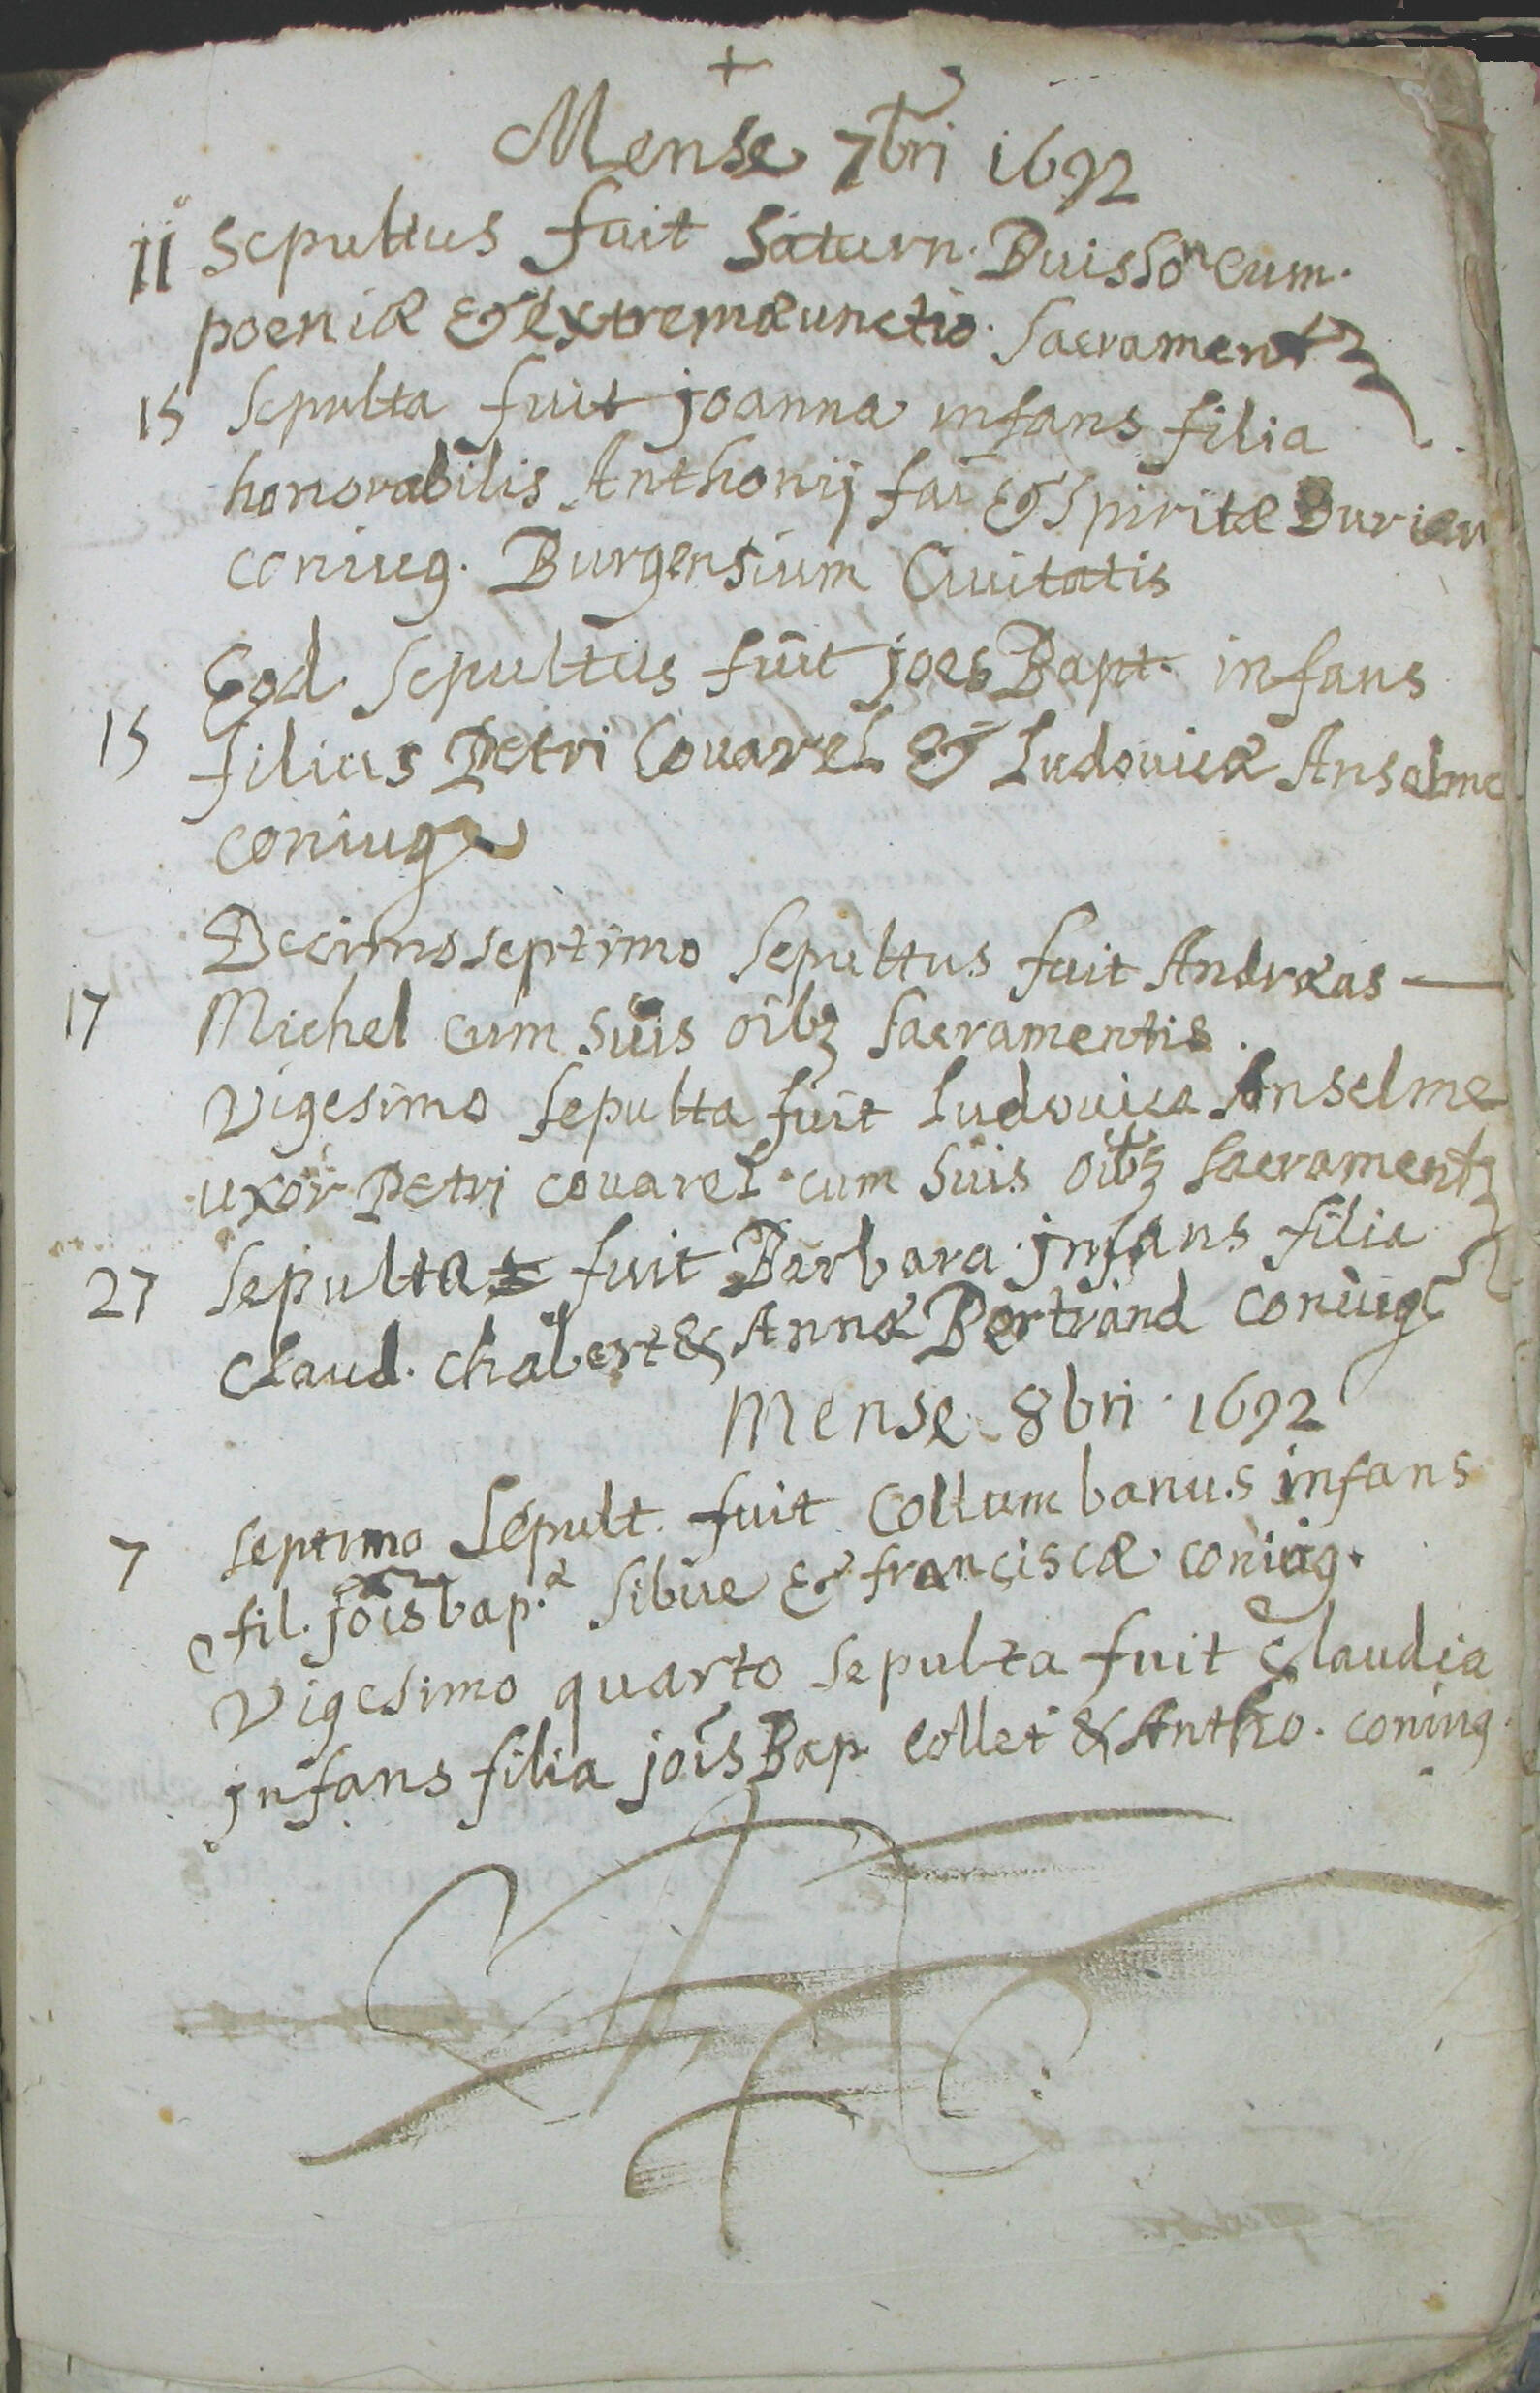 +
Mense 7bri 1692
11 Sepultus fuit Saturn. Buisson cum.
poeniæ & extremæunctio. sacrament
15 Sepulta fuit joanna infans filia
honorabilis Anthonij fai & Spiritæ Burieu
coniug. Burgensium Ciuitatis
Eod. sepultus fuit joes Bapt. infans
15 filius Petri Couarel & Ludouicæ Anselme
coniug
Decimoseptimo sepultus fuit Andræas —
17 Michel cum suis oibz sacramentis.
Vigesimo sepulta fuit Ludouica Anselme
uxor Petri couarel cum suis oibz sacrament
27 Sepulta fuit Barbara jnfans filia
Claud. chabert & Annæ Bertrand coniug
Mense 8bri 1692
7 septimo Sepult. fuit Collumbanus infans
fil. joisbap. Sibue & franciscæ coniug.
Vigesimo quarto sepulta fuit Claudia
jnfans filia jois Bap. collet & Antho. coniug